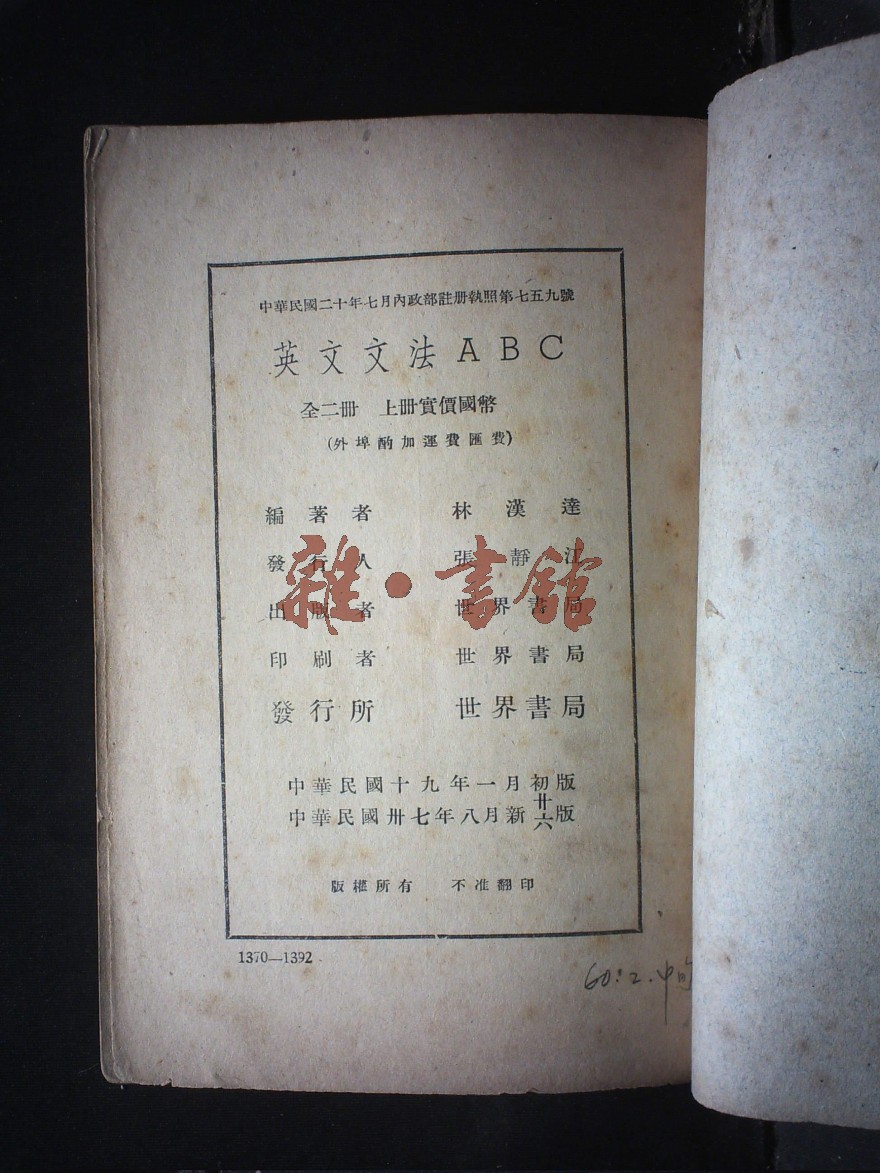 中華民國二十年七月內政部註册執照第七五九號
英文文法ABC
全二冊 上冊實價國幣
(外埠酌加運費匯費)
編著者 林漢達
發行人 張靜江
雜·書館
出版者 世界書局
印刷者 世界書局
發行所 世界書局
中華民國十九年一月初版
中華民國卅七年八月新廿六版
版權所有 不准翻印
1370—1392
60:2.中旬